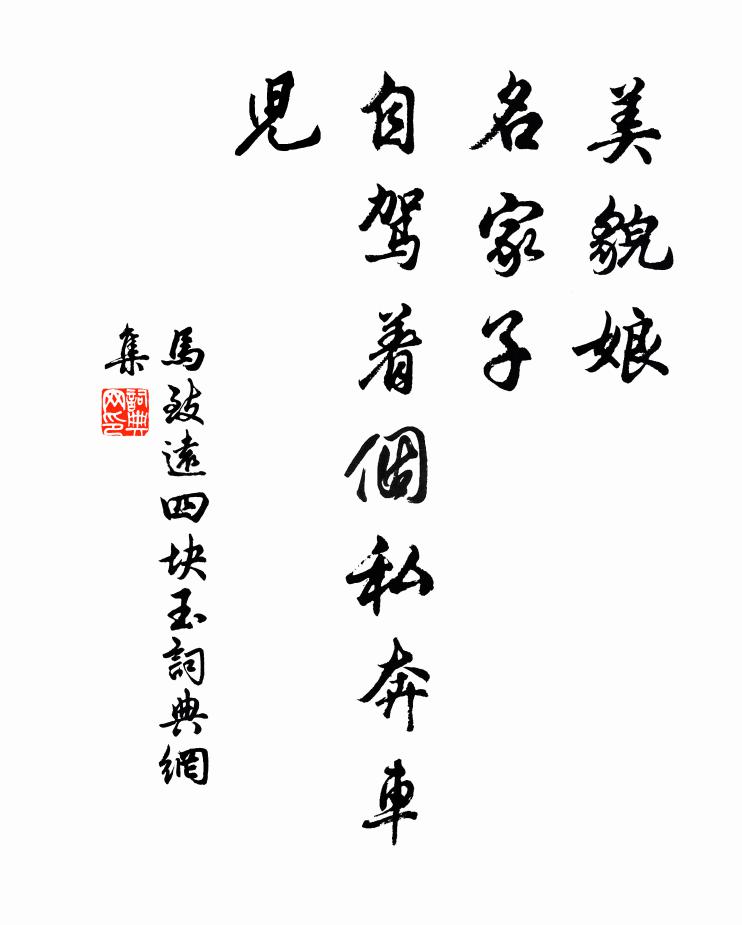 美貌娘
名家子
自駕着個私奔車
兒
馬致遠四块玉詞典網
集
詞典
网印